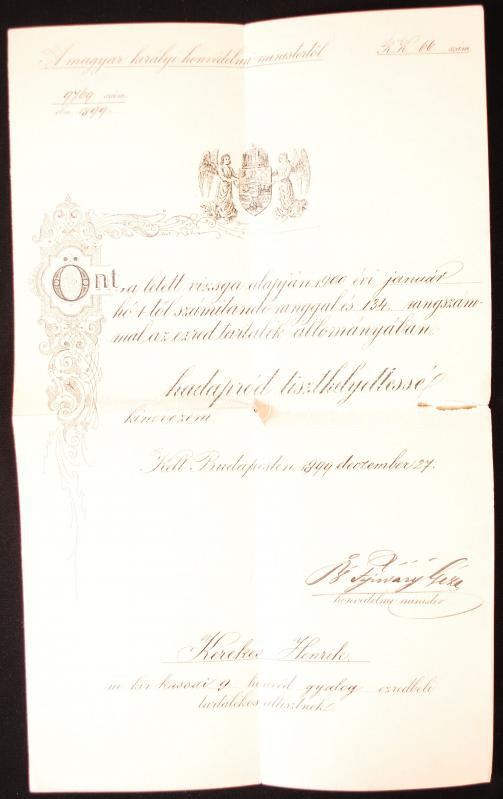 A magyar királyi honvédelmi ministertől
66 szám
9769 szám
1899
Önt, a letett vizsga alapján 1900 évi január
hó 1-től számítandó ranggal és 134. rangszám-
mal, az ezred tartalék állományában
hadapród tiszthelyettessé
kinevezem
Kelt Budapesten 1899 deczember 27.
Br Fejérváry Géza
honvédelmi minister
Kerekes Henrik
m. kir kassai 9 honvéd gyalog ezredbeli
tartalékos altisztnek